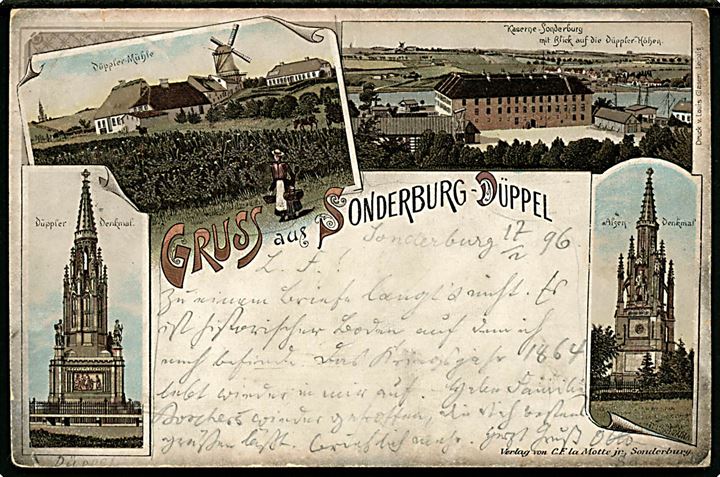 Düppler-Mühle
Kaserne-Sonderburg
mit Blick auf die Düppler-Höhen.
Druck v. Louis Glaser, Leipzig
GRUSS aus SONDERBURG-DÜPPEL
Düppler Denkmal.
Alsen Denkmal
Sonderburg 17/ 96
L. F.!
Zu einem Briefe langt's nicht. Es
ist historischer Boden auf dem ich
mich befinde. Das Kriegsjahr 1864
lebt wieder in mir auf. Habe Familie
wieder getroffen, die dich bestens
grüßen läßt. Brieflich mehr. Gruß Otto
Verlag von C.F. la Motte jr., Sonderburg.